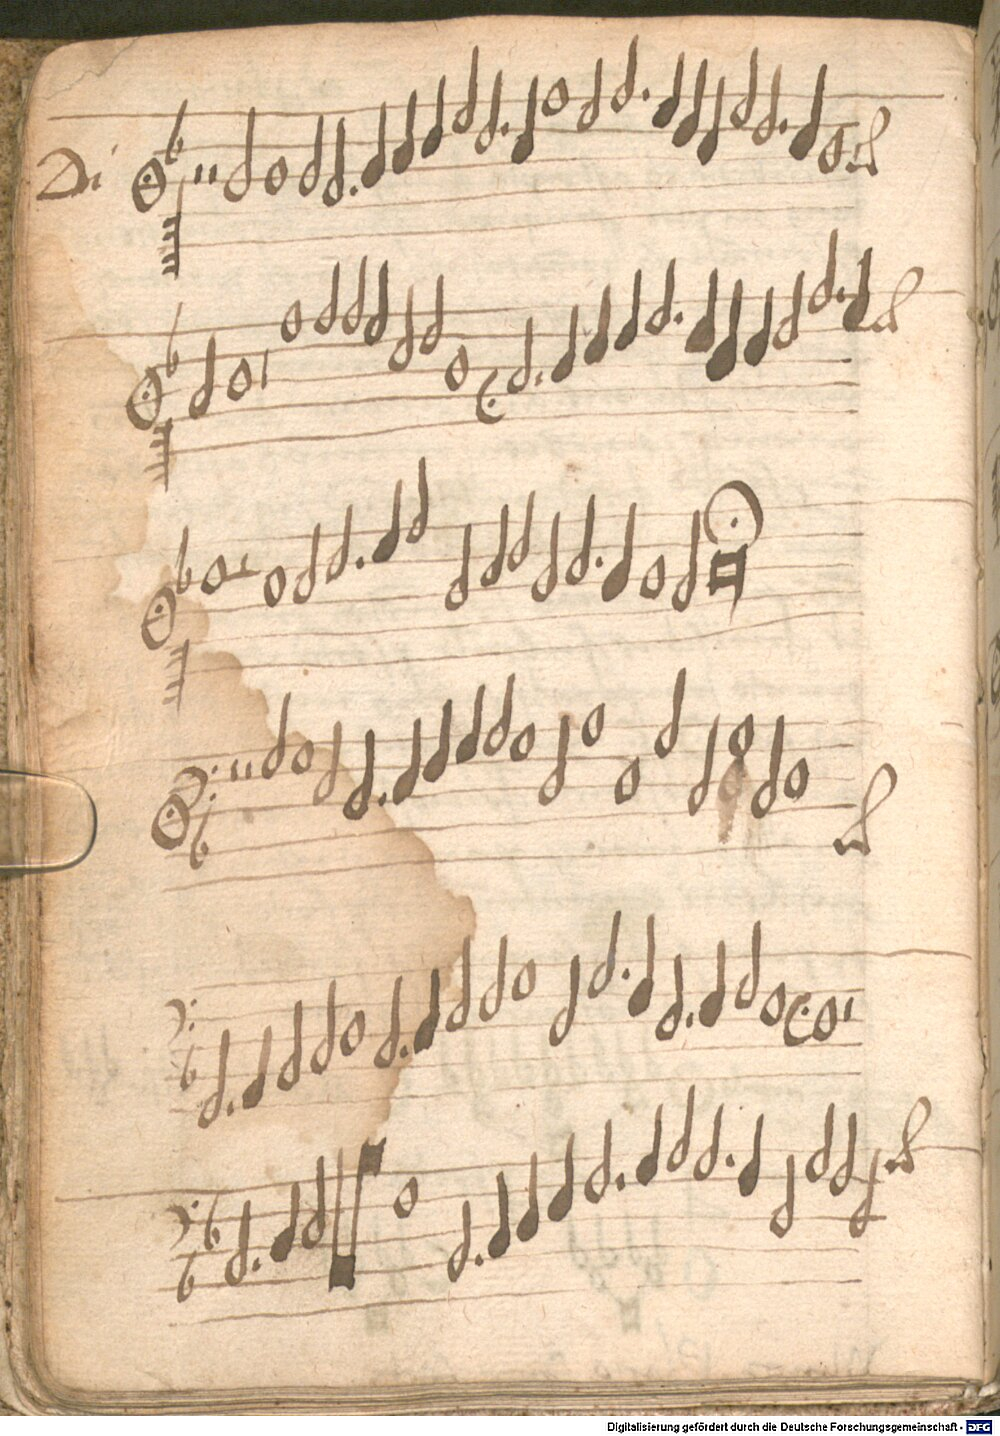 Di
Digitalisierung gefördert durch die Deutsche Forschungsgemeinschaft - DFG